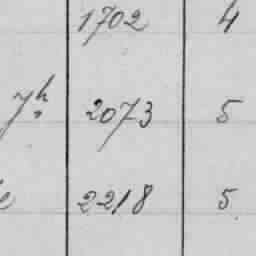 1702 4
2073 5
2218 5